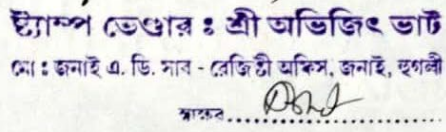 ষ্ট্যাম্প ভেণ্ডার ঃ শ্রী অভিজিৎ ভাট
সো ঃ জনাই এ. ডি. সাব - রেজিষ্ট্রী অফিস, জনাই, হুগলী
স্বাক্ষর